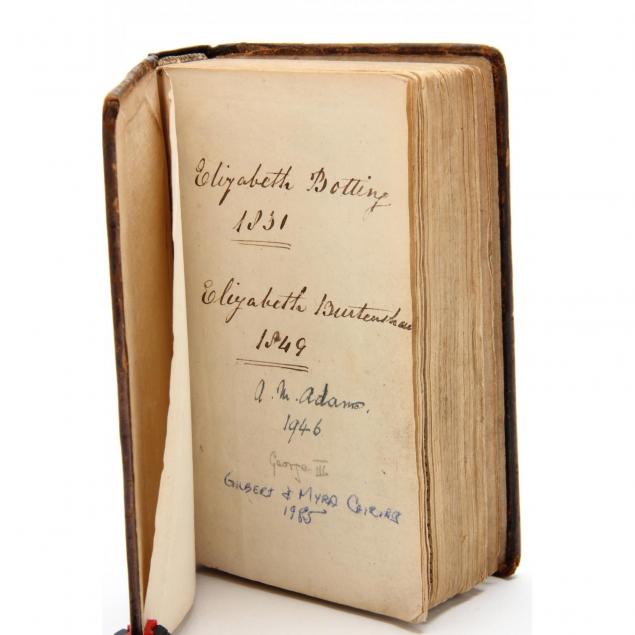 Elizabeth Botting
1831
Elizabeth Burtenshaw
1849
A. M. Adams.
1946
George III
GILBERT & MYRA
1985